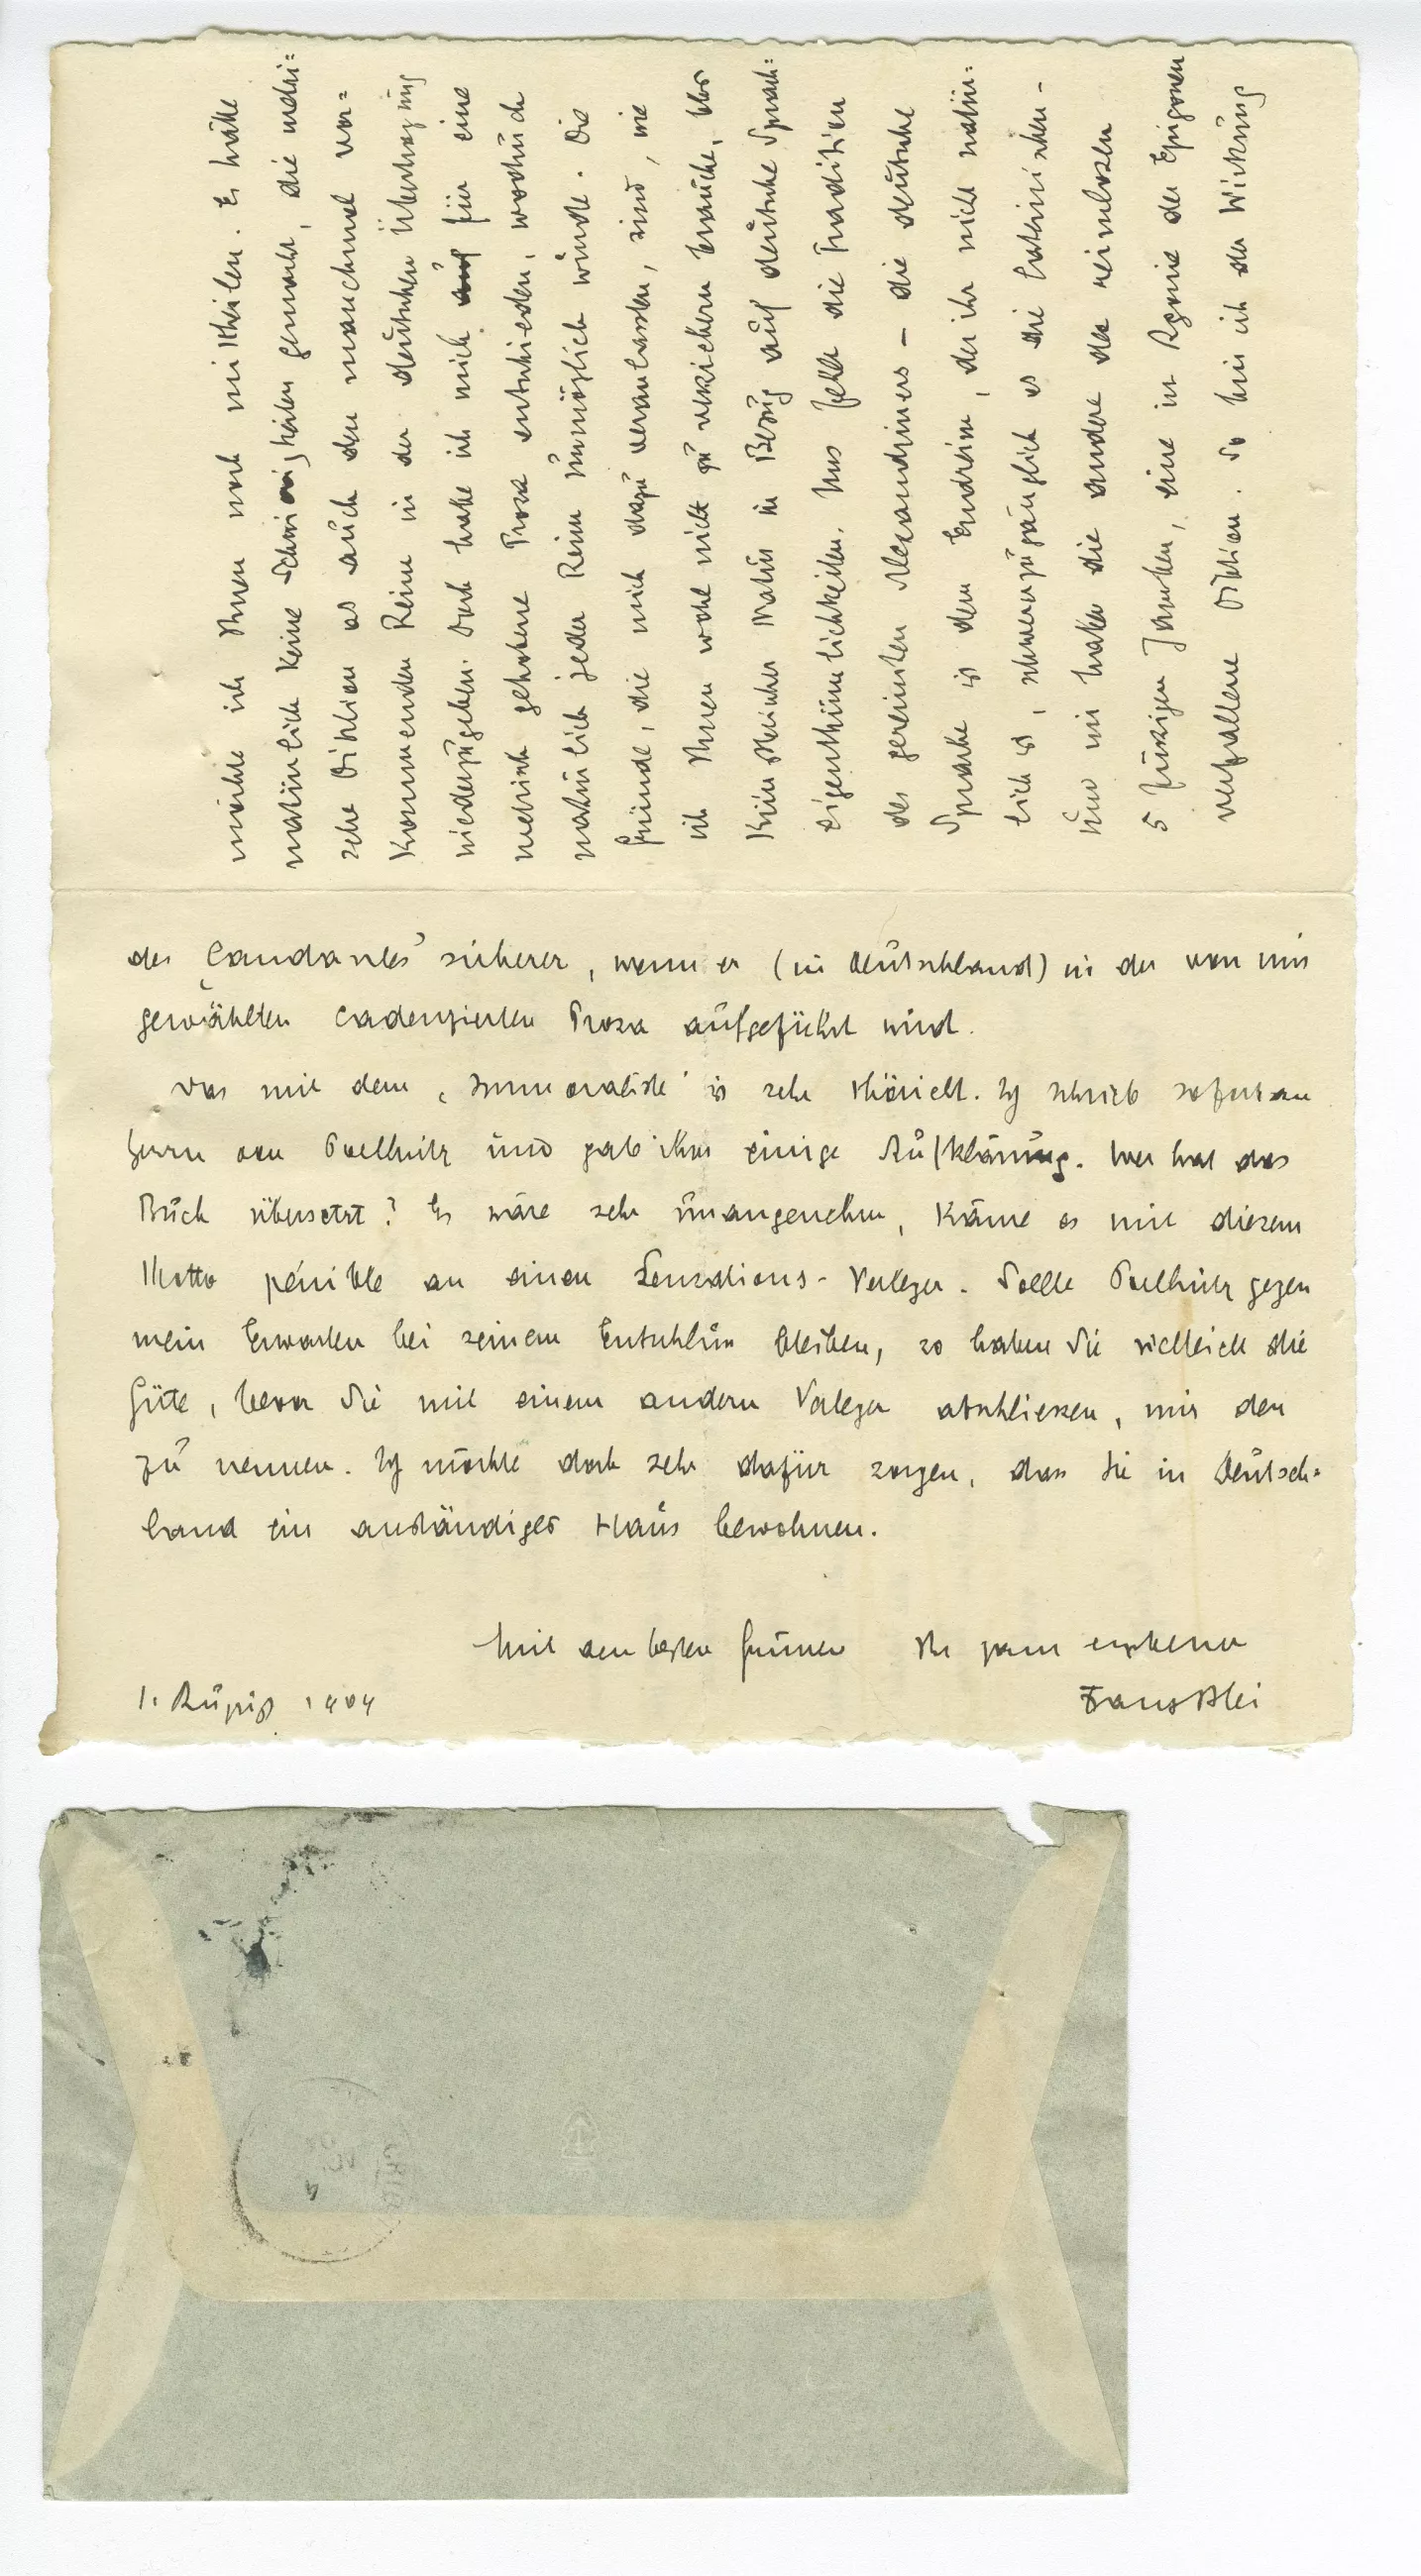 möchte ich Ihnen noch mittheilen. Es hätte
natürlich keine Schwierigkeiten gemacht, die metri=
sche Diktion als auch den manchmal vor=
kommenden Reim in der deutschen Übertragung
niederzugeben. Doch habe ich mich für eine
metrisch gehobene Prosa entschieden, wodurch
natürlich jeder Reim unmöglich würde. Die
Gründe, die mich dazu veranlassten, sind, wie
ich Ihnen wohl nicht zu versichern brauche, blos
künstlerischer Natur in Bezug auf deutsche Sprach=
eigenthümlichkeiten. Uns fehlt die Tradition
des gereimten Alexandriners – die deutsche
Sprache ist dem Endreim, der ihr nicht natür=
lich ist, schwerer zugänglich als die lateinischen –
und wir haben die andere des reimlosen
5 füssigen Jamben, eine in Agonie der Epigonen
verfallene Diktion. So bin ich der Wirkung
des ‚Candaules' sicherer, wenn er (in Deutschland) in der von mir
gewählten cadenzierten Prosa aufgeführt wird.
Das mit dem ‚Immoraliste' ist sehr thöricht. Ich schrieb sofort an
Herrn von Poellnitz und gab ihm einige Aufklärung. Wer hat das
Buch übersetzt? Es wäre sehr unangenehm, käme es mit diesem
Motto pénible an einen Sensations-Verleger. Sollte Poellnitz gegen
mein Erwarten bei seinem Entschluss bleiben, so haben Sie vielleicht die
Güte, bevor Sie mit einem andern Verleger abschliessen, mir den
zu nennen. Ich möchte doch sehr dafür sorgen, dass Sie in Deutsch=
land ein anständiges Haus bewohnen.
Mit den besten Grüssen Ihr ganz ergebener
1. August 1904 Franz Blei